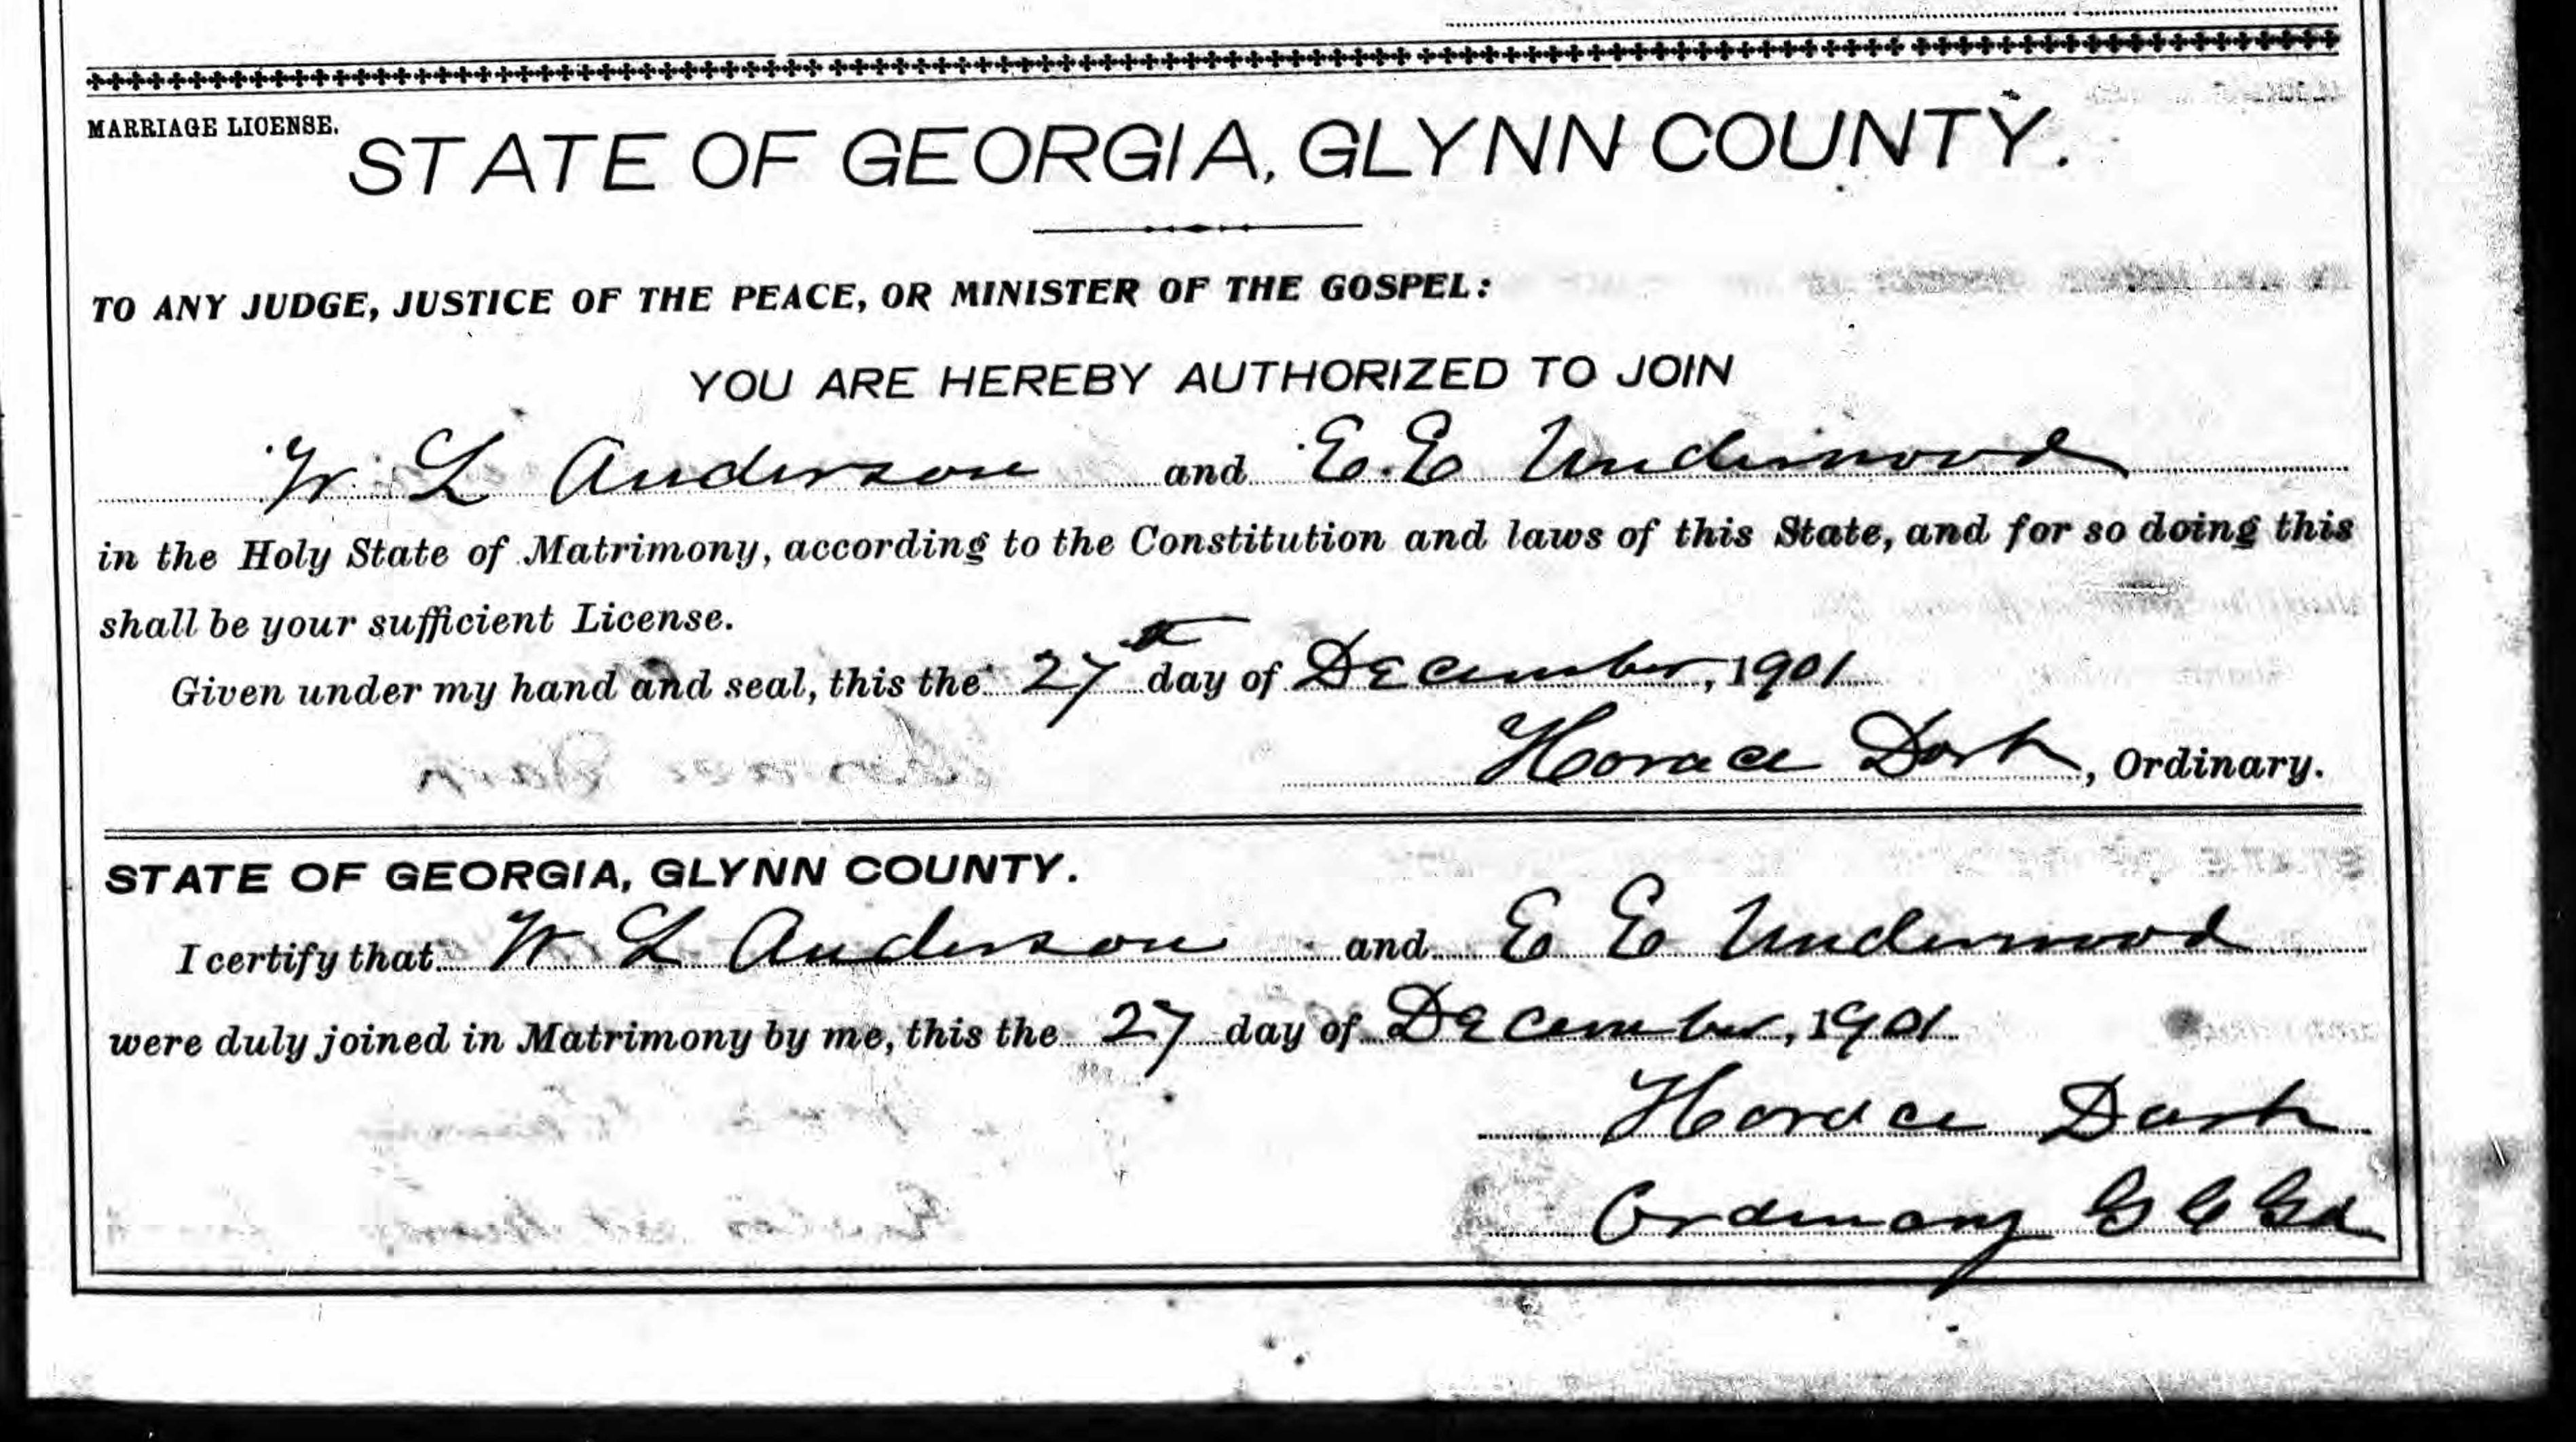 MARRIAGE LICENSE.
STATE OF GEORGIA, GLYNN COUNTY.
TO ANY JUDGE, JUSTICE OF THE PEACE, OR MINISTER OF THE GOSPEL:
YOU ARE HEREBY AUTHORIZED TO JOIN
W. L Anderson and E. E Underwood
in the Holy State of Matrimony, according to the Constitution and laws of this State, and for so doing this
shall be your sufficient License.
Given under my hand and seal, this the 27th day of December, 1901
Horace Dart, Ordinary.
STATE OF GEORGIA, GLYNN COUNTY.
I certify that W L Anderson and E E Underwood
were duly joined in Matrimony by me, this the 27 day of December, 1901
Horace Dart
Ordinary G C Ga